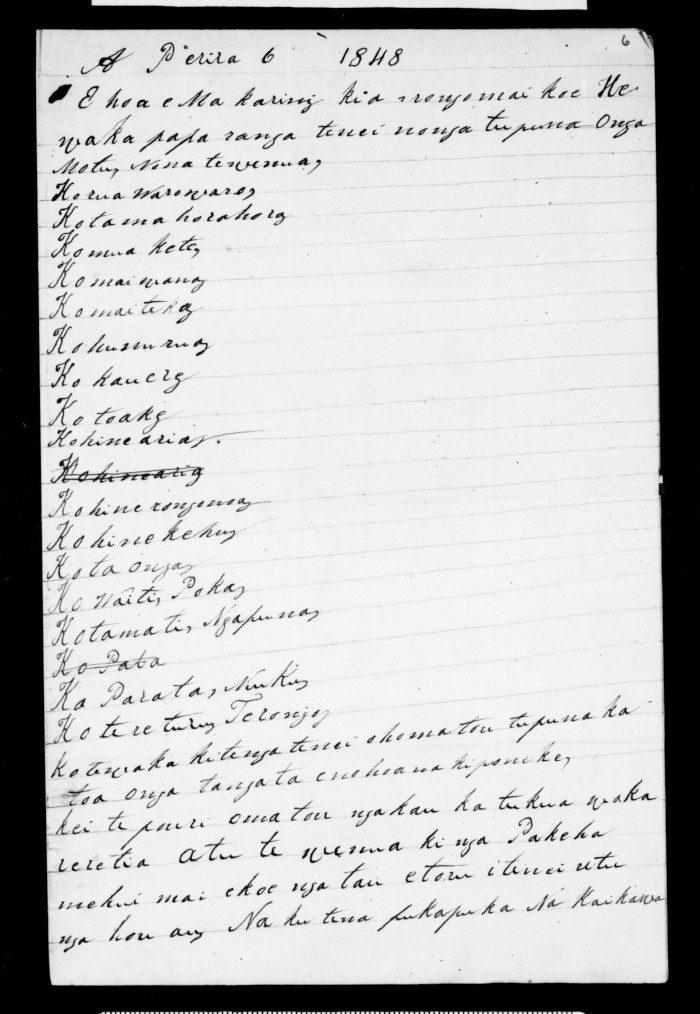 6
A Perira 6 1848
E hoa e Ma karini kia rongo mai koe He
waka papa ranga tenei nonga tupuna Onga
Motu, Nona te wenua,
Ko rua Warowaro,
Ko tama horahora
Ko mua kete,
Ko mai wana
Ko mai teka
Ko huruurua
Ko kauera
Ko toaka
Ko hine aria,.
Ko hinearia
Ko hine rongonoa
Ko hine kehu,
Ko ta onga,
Ko Waiti, Poka,
Ko tamati, Ngapuna,
Ko Pata
Ka Parata, NuKu,
Ko te returu, Terongo,
Ko te waka kitenga tenei o homatou tupuna ka
toa onga tangata e nohoana ki poneke,
kei te pouri o matou ngakau ka tukua waka
reretia atu te wenua ki nga Pakeha
mehui mai e koe nga tau e toru i tenei utu
nga hou au, Na ku tena pukapuka Na Kaikawa